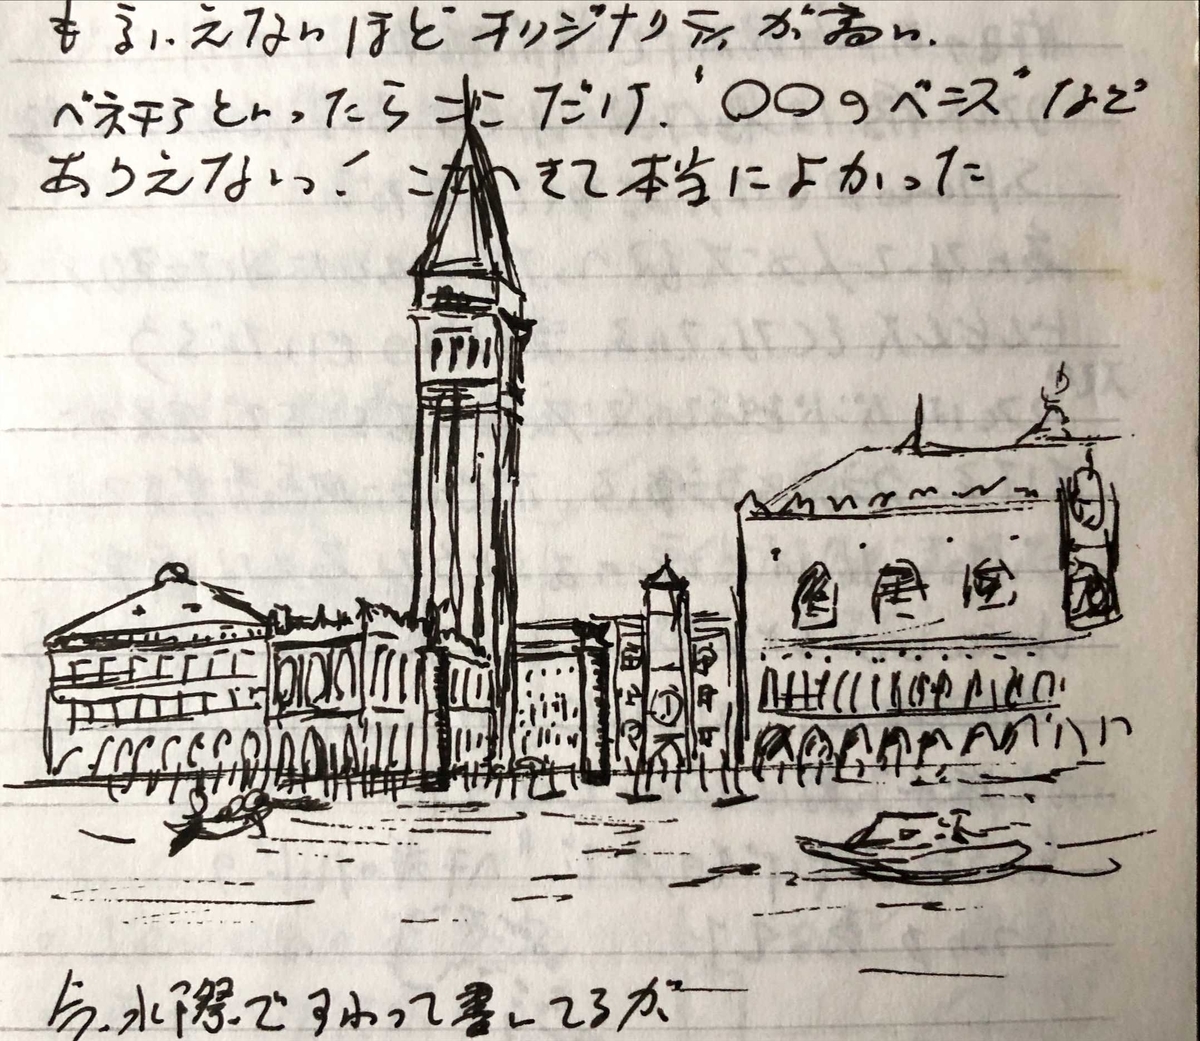 もふいえないほどオリジナリティが高い.
ベネチアといったらここだけ. "〇〇のベニス" など
ありえないっ! ここへきて本当によかった
今、水際ですわって書いてるが、